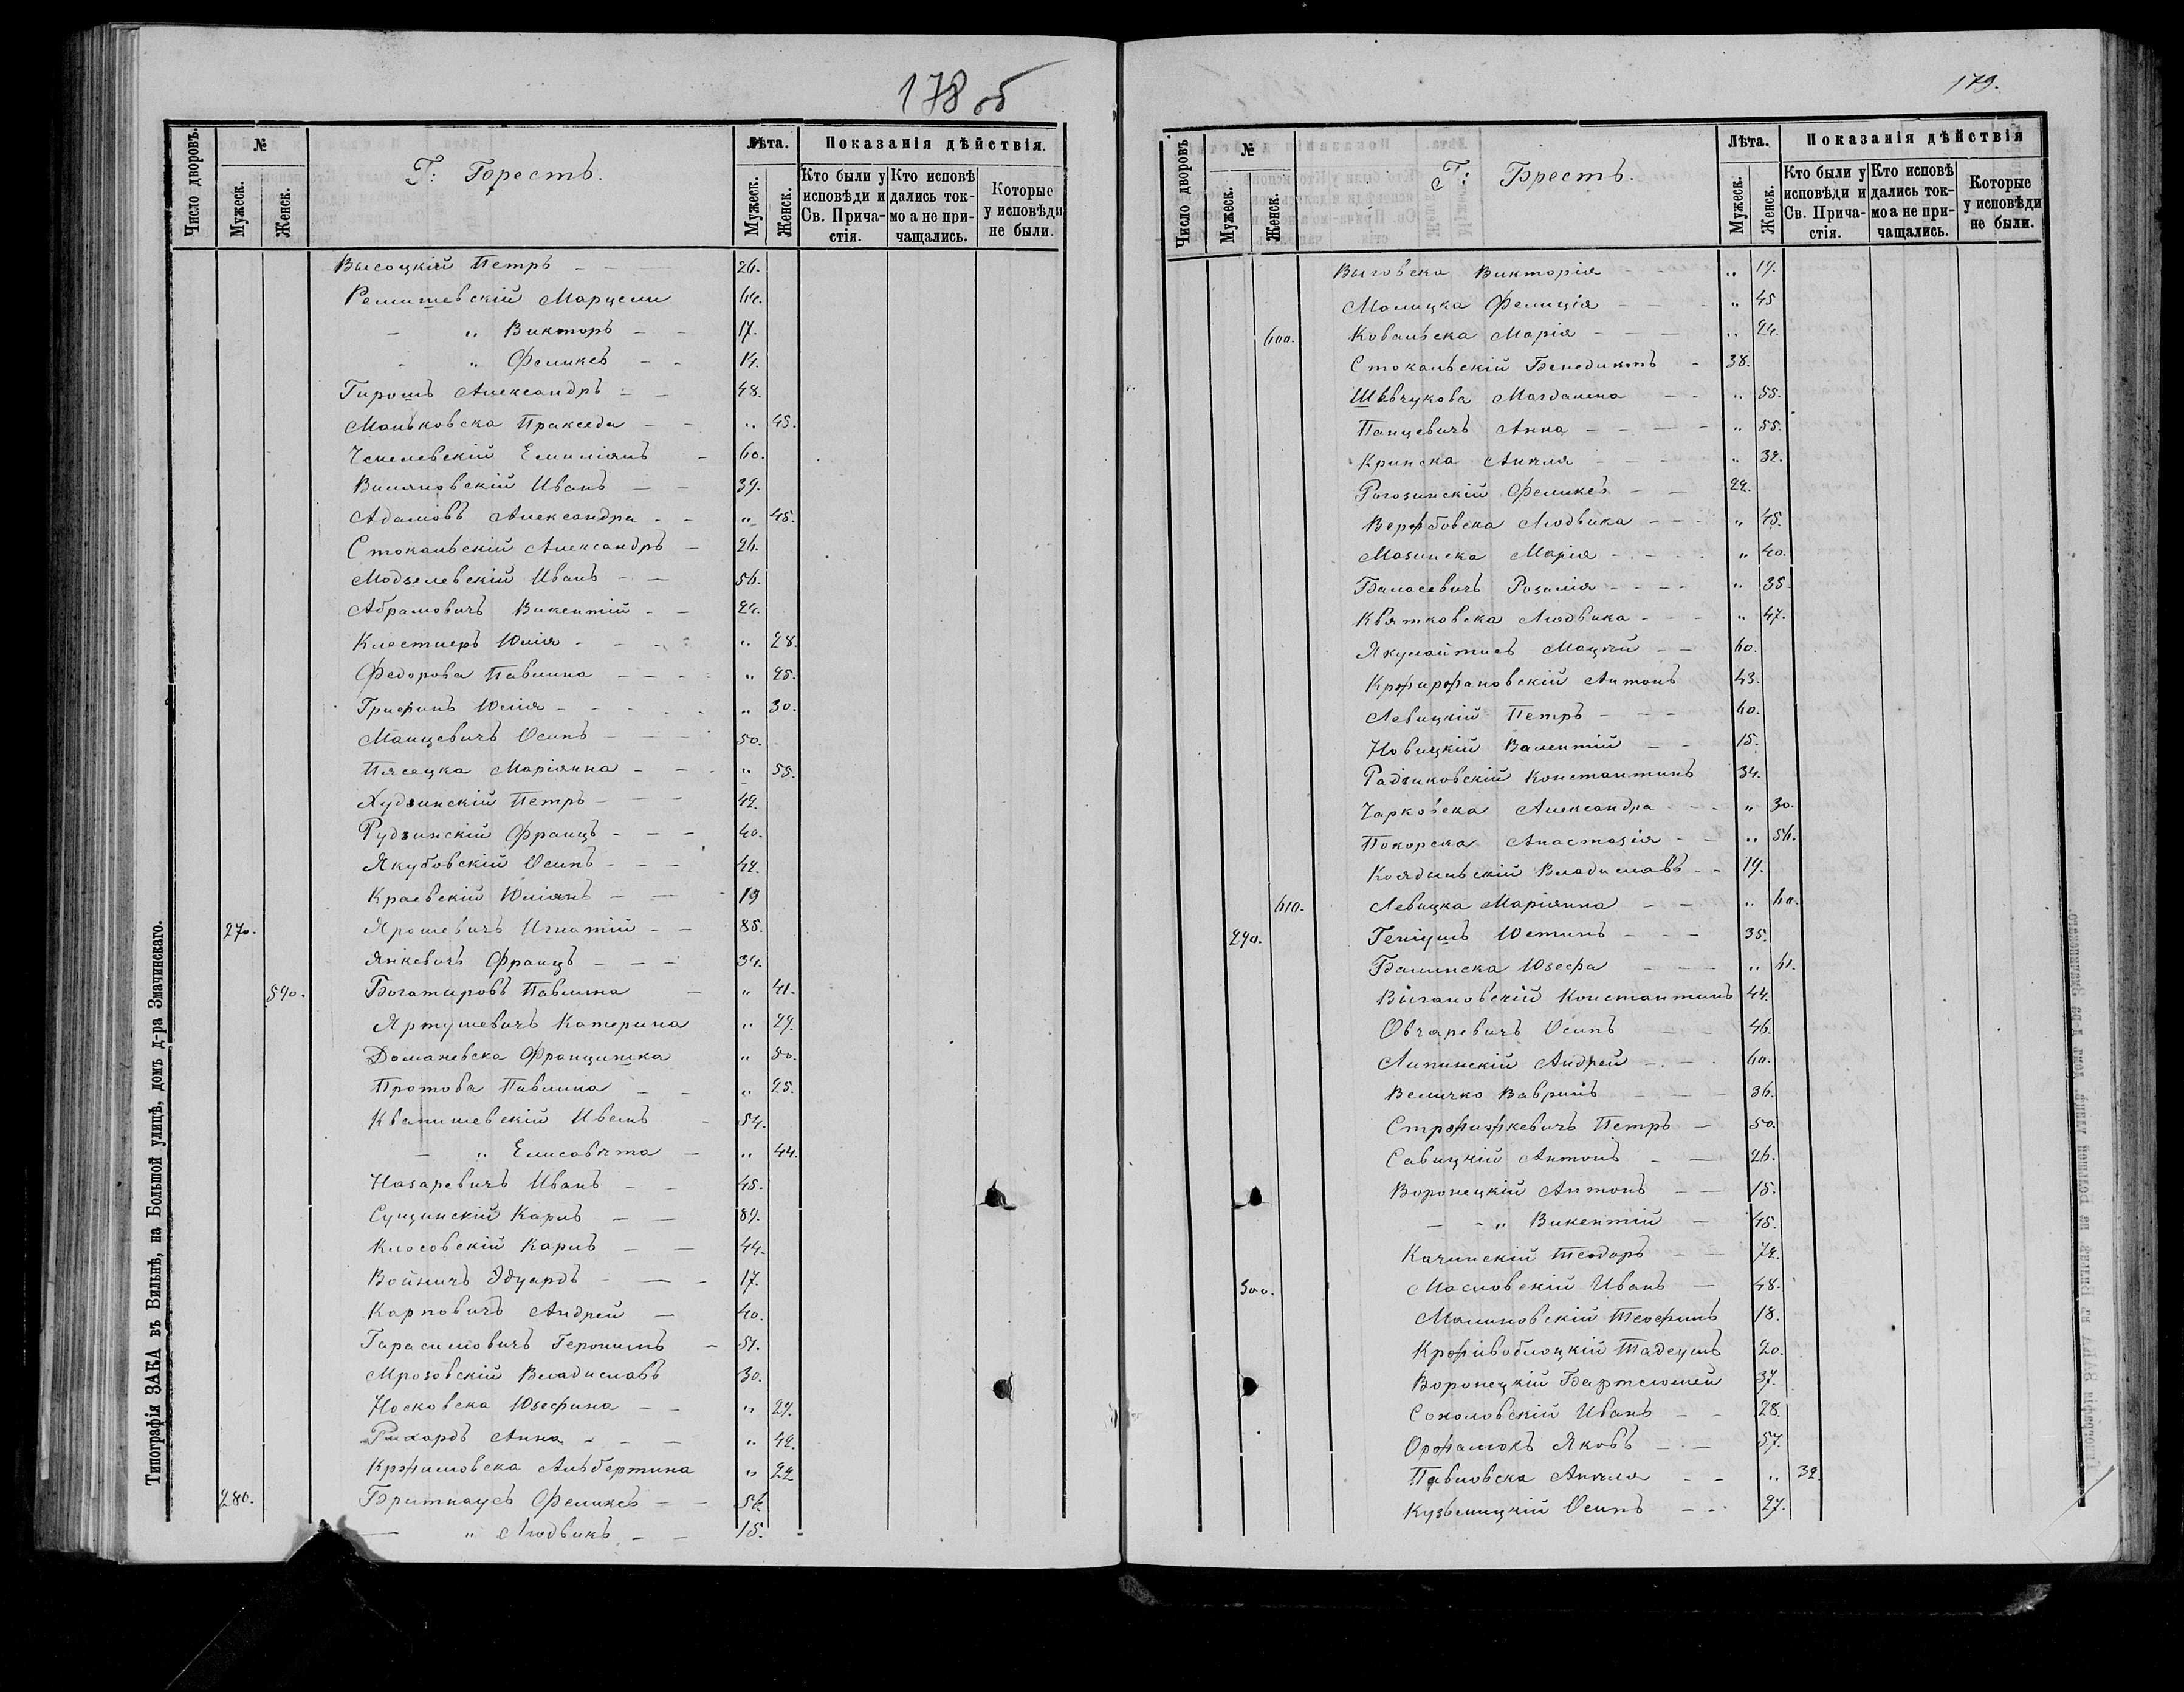 178 об
Число дворовъ.
№
Мужеск.
Женск.
Г: Брестъ.
Лѣта.
Мужеск.
Женск.
Показанія дѣйствія.
Кто были у исповѣди и Св. Прича-стія.
Кто исповѣ дались ток-мо а не при-чащались.
Которые у исповѣди не были.
Высоцкій Петръ — 26.
Ремишевскій Марцели 64.
— „ Викторъ — 17.
- „ Феликсъ — 14.
Гирошъ Александръ — 48.
Маньковска Пракседа — „ 45.
Емиліянъ - 60.
Виляновскій Иванъ — 39.
Адамовъ Александра - „ 45.
Стокальскій Александръ — 26.
Модзелевскій Иванъ — 56.
Абрамовичъ Викентій — 24.
Юлія - „ 28.
Федорова Павлина — „ 25.
Грифинъ Юлія — „ 30.
Манцевичъ Осипъ — 50.
Пясецка Маріянна — „ 55.
Худзинскій Петръ — 42.
Рудзинскій Францъ — 40.
Якубовскій Осипъ — 42.
Краевскій Юліянъ — 19
270. Ярошевичъ Игнатій — 85.
Янкевичъ Францъ — 34.
590. Богатыровъ Павлина — „ 41.
Яртушевичъ Катерина „ 29.
Доманевска Францишка „ 50.
Протова Павлина — „ 25.
Квапишевскій Иванъ - 54.
— „ Елисавѣта — „ 44.
Назаревичъ Иванъ — 45.
Сущинскій Карлъ — 89.
Клосовскій Карлъ — 44.
Войничъ Эдуардъ — 17.
Карповичъ Андрей — 40.
Гарасимовичъ Геронимъ — 51.
Мрозовскій Владиславъ 30.
Носковска Юзефина — „ 29.
Рихардъ Анна — „ 42.
Кржимовска Альбертина „ 22
280. Бритнаусъ Феликсъ — 56.
— „ Людвикъ — 15.
Типографія ЗАКА въ Вильнѣ, на Большой улицѣ, домъ д-ра Змачинскаго.
179.
Число дворовъ
№
Мужеск.
Женск.
Г: Брестъ.
Лѣта.
Мужеск.
Женск.
Показанія дѣйствія
Кто были у исповѣди и Св. Прича-стія.
Кто исповѣ дались ток-мо а не при-чащались.
Которые у исповѣди не были.
Выговска Викторія - „ 19.
Малицка Фелиція — „ 45
600. Ковальска Марія — „ 24.
Стокальскій Бенедиктъ - 38.
Шевчукова Магдалена - „ 55.
Панцевичъ Анна — „ 55.
Кринска Анѣля — „ 32.
Рогозинскій Феликсъ — 22.
Вержбовска Людвика — „ 45.
Мазинска Марія — „ 40.
Баласевичъ Розалія — „ 35.
Квятковска Людвика - „ 47.
Якулайтисъ Мацѣй — 60.
Кржиржановскій Антонъ 43.
Левицкій Петръ — 60.
Новицкій Валентій — 15.
Радзиковскій Константинъ 34.
Чарковска Александра - „ 30.
Покорска Анастазія - „ 56.
Владиславъ - 19.
610. Левицка Маріянна — „ 60.
290. Геніушъ Юстинъ — 35.
Балинска Юзефа — „ 61.
Выгановскій Константинъ 44.
Овчаревичъ Осипъ — 46.
Липинскій Андрей — 60.
Величко Вавринъ — 36.
Стржижкевичъ Петръ — 50.
Савицкій Антонъ — 26.
Воронецкій Антонъ — 15.
— „ Викентій — 45.
Качинскій Теодоръ — 72.
300. Масловскій Иванъ — 48.
Малиновскій Теофилъ 18.
Крживоблоцкій Тадеушъ 20.
Воронецкій Бартеломей 37.
Соколовскій Иванъ — 28.
Оржамокъ Яковъ — 57.
Павловска Анѣля — „ 32.
Кузьмицкій Осипъ — 27.